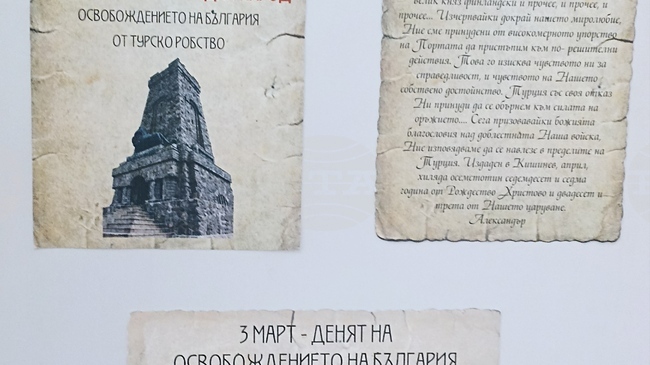 ОСВОБОЖДЕНИЕТО НА БЪЛГАРИЯ
ОТ ТУРСКО РОБСТВО
велик княз финландски и прочее, и прочее, и
прочее... Изчерпвайки докрай нашето миролюбие,
Ние сме принудени от високомерното упорство
на Портата да пристъпим към по- решителни
действия. Това го изисква чувството ни за
справедливост, и чувството на Нашето
собствено достойнство. Турция със своя отказ
Ни принуди да се обърнем към силата на
оръжието.... Сега призовавайки божията
благословия над доблестната Наша войска,
Ние изповядваме да се навлезе в пределите на
Турция. Издаден в Кишинев, април,
хиляда осемстотин седемдесет и седма
година от Рождество Христово и двадесет и
трета от Нашето царуване.
Александър
3 МАРТ - ДЕНЯТ НА
ОСВОБОЖДЕНИЕТО НА БЪЛГАРИЯ